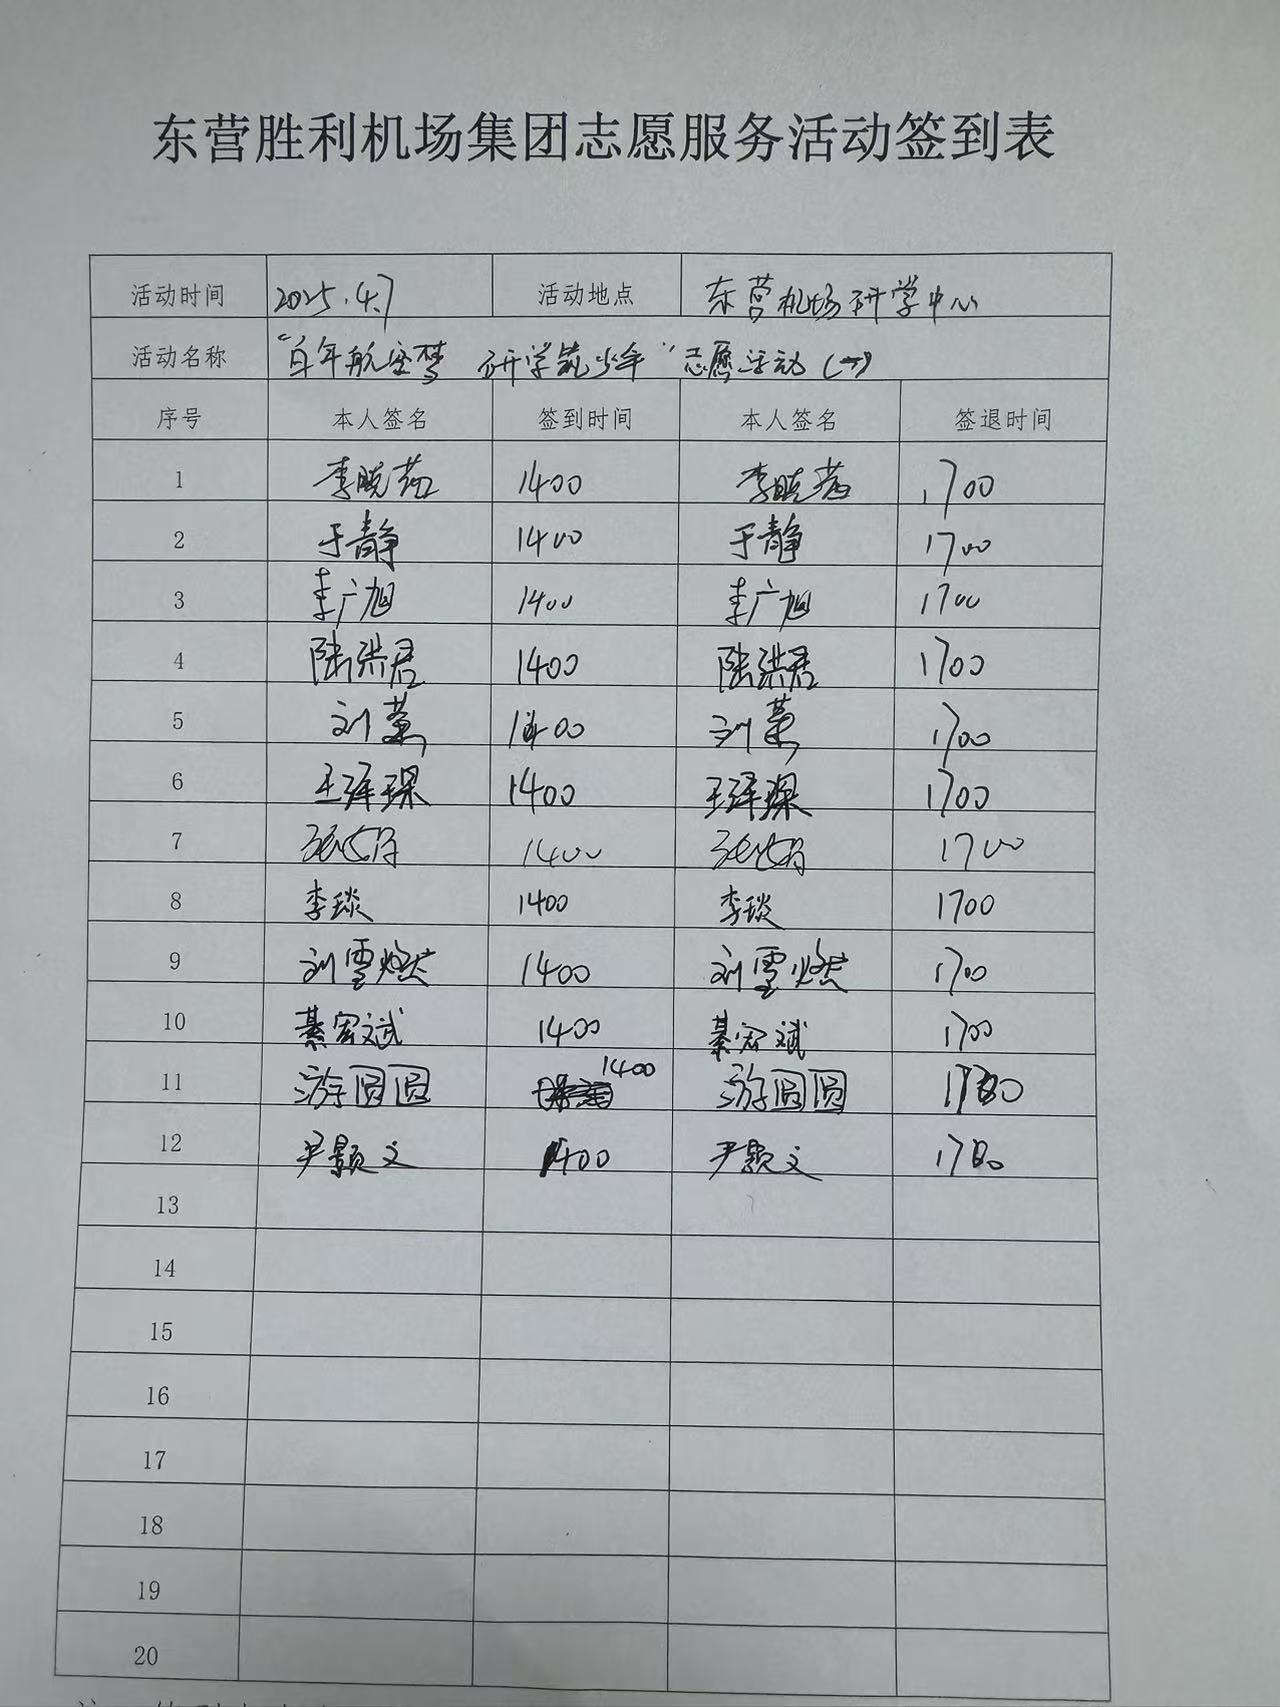 东营胜利机场集团志愿服务活动签到表
活动时间 2025.4.7 活动地点 东营机场研学中心
活动名称 "百年航空梦 研学筑少年"志愿活动(一)
序号 本人签名 签到时间 本人签名 签退时间
1 李晓 1400 李晓 1700
2 于静 1400 于静 1700
3 李广旭 1400 李广旭 1700
4 陆洪君 1400 陆洪君 1700
5 刘 1400 刘 1700
6 王泽琛 1400 王泽琛 1700
7 1400 1700
8 李琰 1400 李琰 1700
9 刘雪燃 1400 刘雪燃 1700
10 綦宏斌 1400 綦宏斌 1700
11 游圆圆 1400 游圆圆 1700
12 尹颢文 1400 尹颢文 1700
13
14
15
16
17
18
19
20